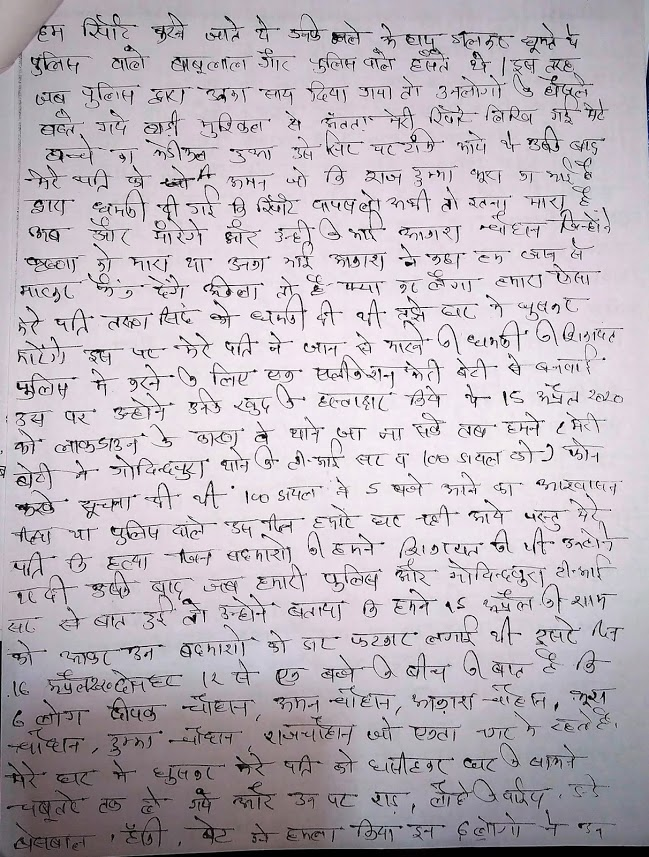 हम रिपोर्ट करने जाते थे उनके गले के हाथ डालकर घूमते थे
पुलिस वाले बाबूलाल और पुलिस वाले हँसते थे। इस तरह
जब पुलिस द्वारा उनका साथ दिया गया तो उनलोगों के हौसले
बढ़ते गये बड़ी मुश्किल से मेरी रिपोर्ट लिखि गई मेरे
बच्चे का मेडीकल हुआ उसे सिर पर टांके आये थे उसके बाद
मेरे पति को अमन जो कि राज डुम्मा भूरा का भाई है
द्वारा धमकी दी गई कि रिपोर्ट वापस लो अभी तो इतना मारा है
अब और मारेंगे और उन्ही के भाई आकाश चौहान जिन्होंने
को मारा था उनका भाई आकाश ने कहा हम जान से
मारकर फेंक देंगे अकेला तो है क्या कर लेगा हमारा ऐसा
मेरे पति तखत सिंह को धमकी दी थी तुझे घर में घुसकर
मारेंगे इस पर मेरे पति ने जान से मारने की धमकी की शिकायत
पुलिस में करने के लिए एक एप्लीकेशन मेरी बेटी से बनवाई
उस पर उन्होंने उनके खुद के हस्ताक्षर किये थे 15 अप्रैल 2020
को लाकडाउन के कारण वे थाने जा ना सके तब हमने (मेरी
बेटी ने गोविन्दपुरा थाने के टी.आई सर व 100 डायल को) फोन
करके सूचना दी थी 100 डायल ने 5 बजे आने का आश्वासन
दिया था पुलिस वाले उस दिन हमारे घर नही आये परन्तु मेरे
पति कि हत्या जिन बदमाशो की हमने शिकायत की थी उन्होंने
कर दी उसके बाद जब हमारी पुलिस और गोविन्दपुरा टी.आई
सर से बात हुई तो उन्होंने बताया कि हमने 15 अप्रैल की शाम
को आकर उन बदमाशो को डाट फटकार लगाई थी दूसरे दिन
16 अप्रैल 2020 दोपहर 12 से एक बजे के बीच की बात है कि
6 लोग दीपक चौहान, अमन चौहान, आकाश चौहान, भूरा
चौहान, डुम्मा चौहान, राज चौहान जो एकता नगर में रहते है.
मेरे घर में घुसकर मेरे पति को घसीटकर घर के सामने
चबूतरे तक ले गये और उन पर राड, लोहे के पाईप, डंडे
बेसबाल, हॉकी, बेट से हमला किया इन 6 लोगो ने उन